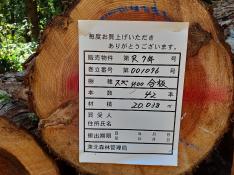 毎度お買上げいただき
ありがとうございます。
販売物件 第 R7年 号
巻立番号 第 001096 号
樹種 スギ 400 合板
本数 42 本
材積 20.018 ㎥
買受人
住所氏名
搬出期限 自 年 月 日
至 年 月 日
東北森林管理局